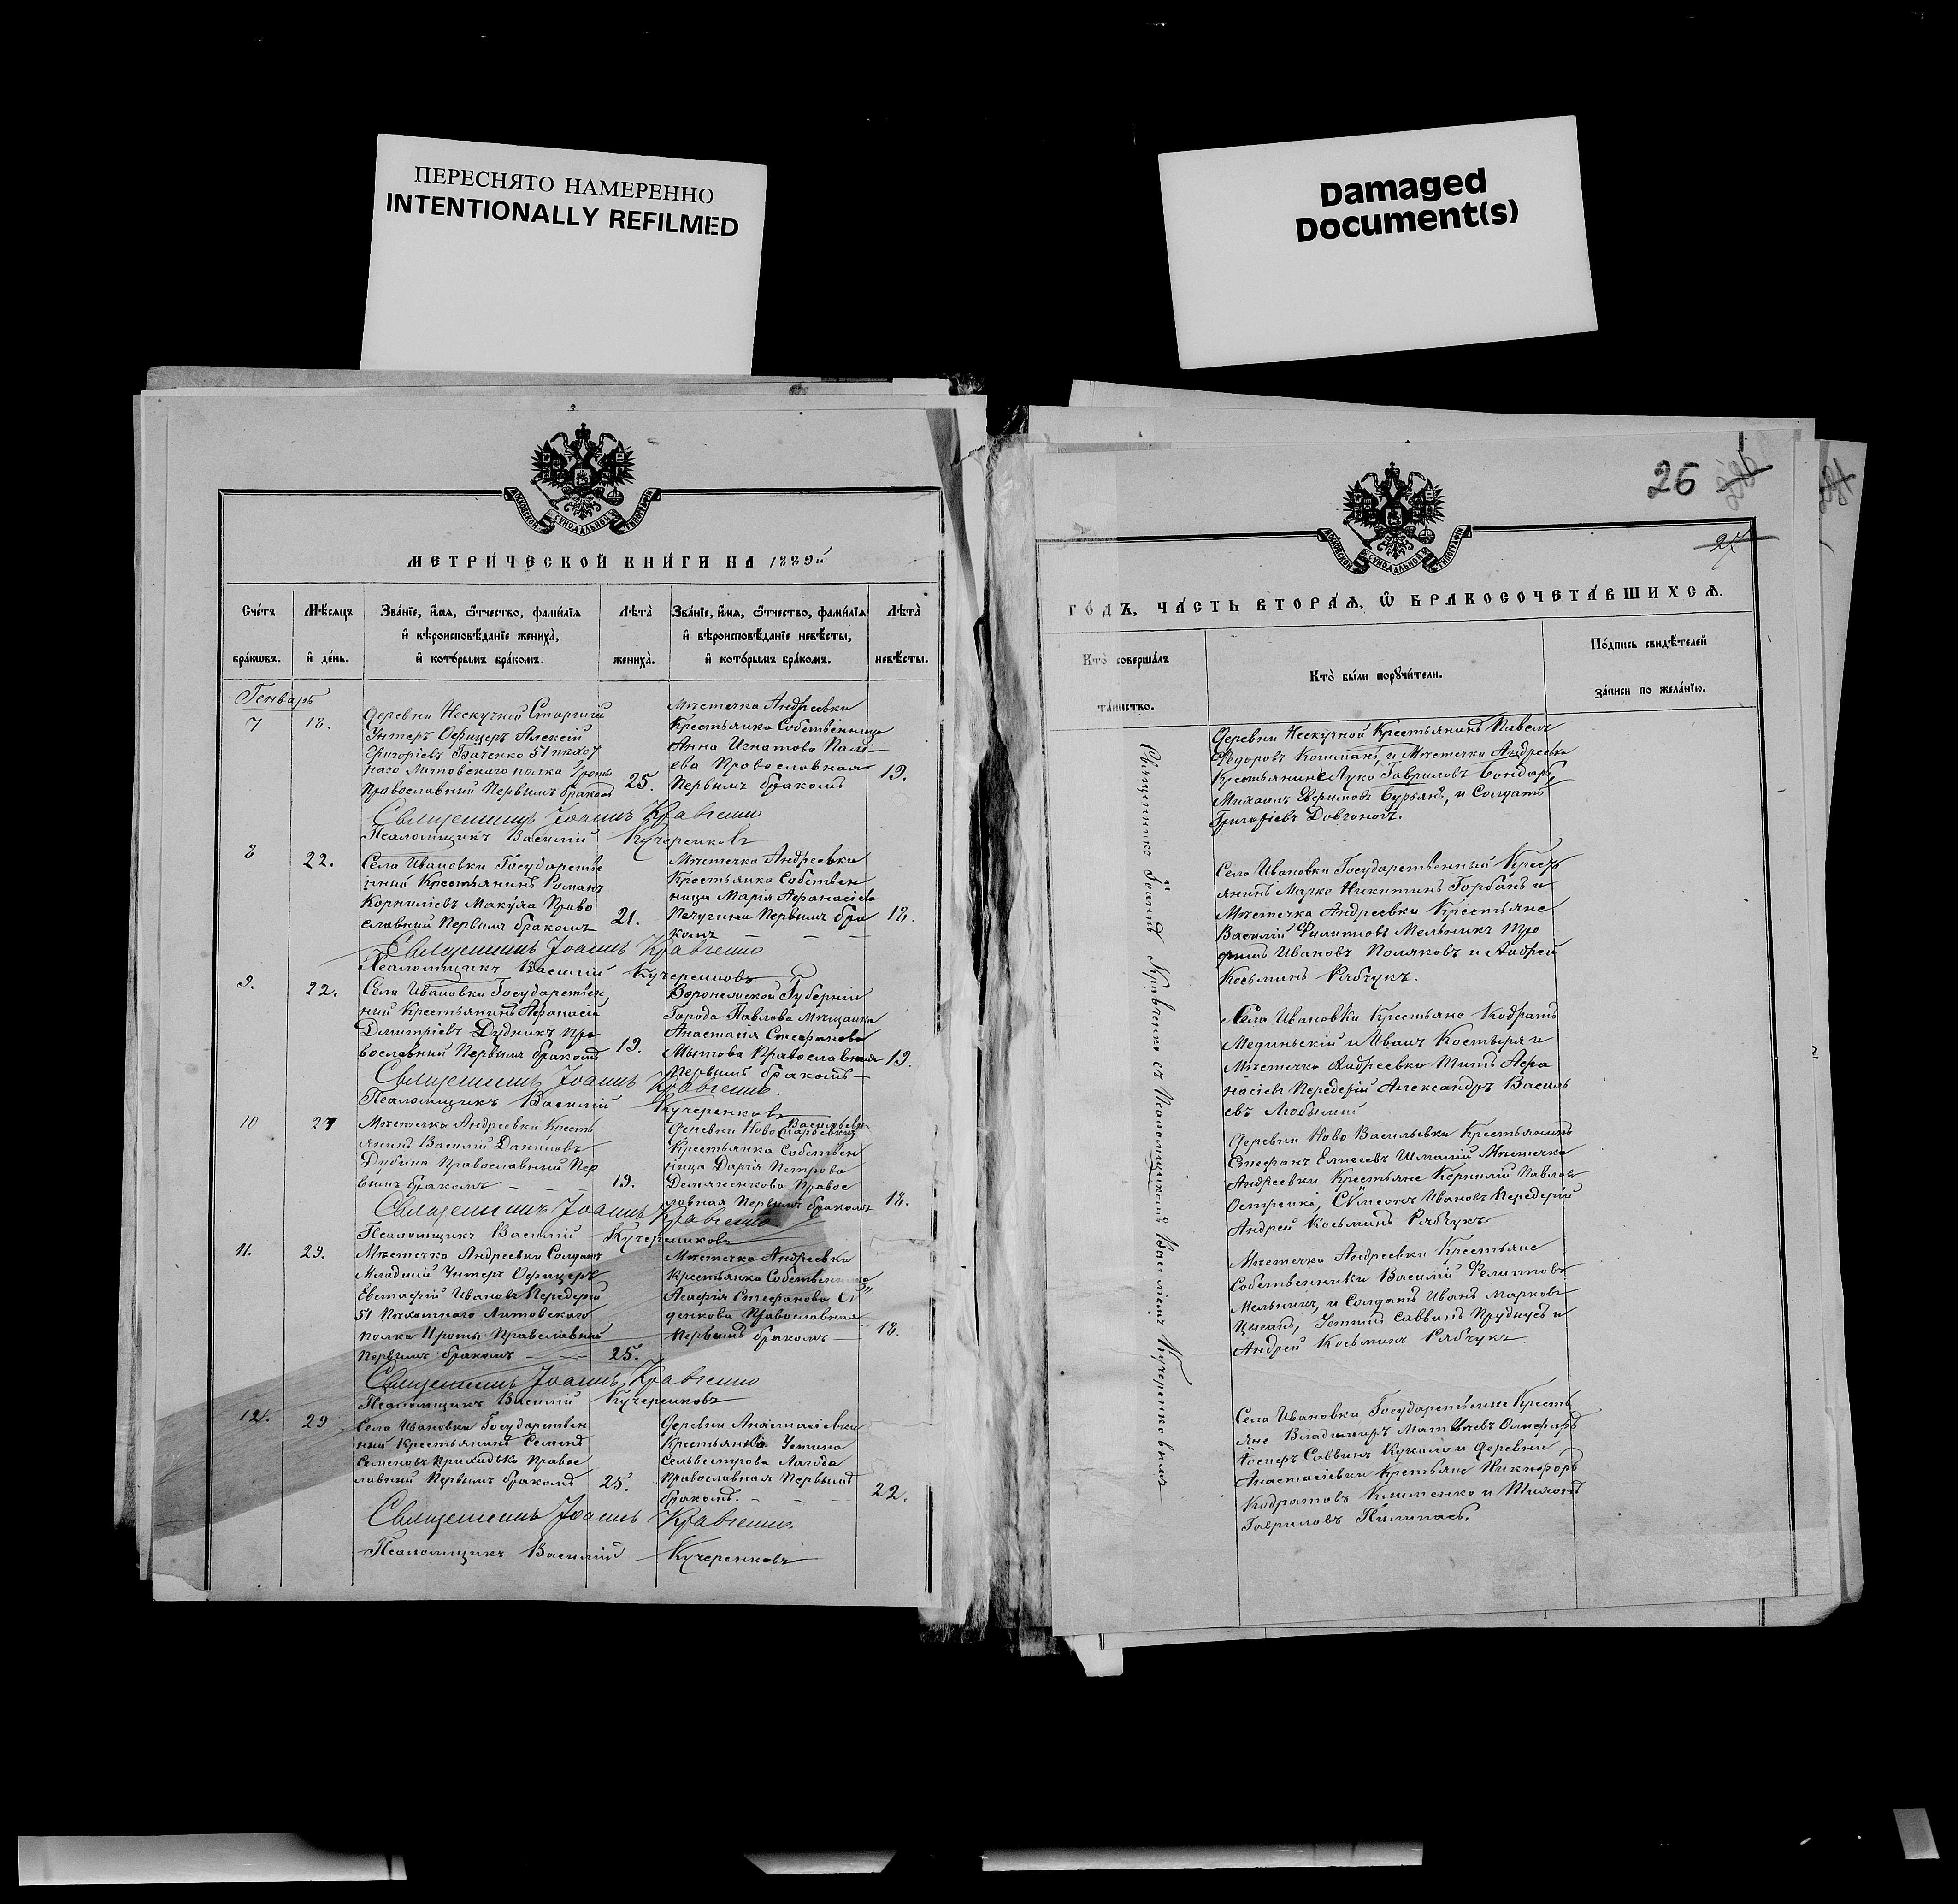 ПЕРЕСНЯТО НАМЕРЕННО
INTENTIONALLY REFILMED
Damaged
Document(s)
МОСКОВСКОЙ СУНОДАЛЬНОЙ ТИПОГРАФІИ
МЕТРИЧЕСКОЙ КНИГИ НА 1889й
Счетъ браковъ.
Мѣсяцъ и день.
Званіе, имя, отчество, фамилія
и вѣроисповѣданіе жениха,
и которымъ бракомъ.
Лѣта жениха.
Званіе, имя, отчество, фамилія
и вѣроисповѣданіе невѣсты,
и которымъ бракомъ.
Лѣта невѣсты.
Генварь
7
18.
Деревни Нескучной Старшій
Унтеръ Офицеръ Алексій
Григоріевъ Баченко 51 пѣхот
наго Литовскаго полка
Православный Первымъ бракомъ
25.
Мѣстечка Андреевки
Крестьянка Собственница
Анна Игнатова
ева Православная
Первымъ бракомъ
19.
Священникъ Іоаннъ Кравченко
Псаломщикъ Василій Кучеренковъ
8
22.
Села Ивановки Государстве
нный Крестьянинъ Романъ
Корниліевъ Макуха Право
славный Первымъ бракомъ
21.
Мѣстечка Андреевки
Крестьянка Собствен
ница Марія Афанасіева
Печугина Первымъ бра
комъ
18.
Священникъ Іоаннъ Кравченко
Псаломщикъ Василій Кучеренковъ
9.
22.
Села Ивановки Государствен
ный Крестьянинъ Афанасій
Димитріевъ Дудникъ Пра
вославный Первымъ бракомъ
19.
Воронежской Губерніи
Города Павлова Мѣщанка
Анастасія Стефанова
Мытова Православная
Первымъ бракомъ
19.
Священникъ Іоаннъ Кравченко
Псаломщикъ Василій Кучеренковъ
10
27
Мѣстечка Андреевки Кресть
янинъ Василій Даниловъ
Дубина Православный Пер
вымъ бракомъ
19.
Васильевки
Деревни Ново
Крестьянка Собствен
ница Дарія Петрова
Демяненкова Правос
лавная Первымъ бракомъ
18.
Священникъ Іоаннъ Кравченко
Псаломщикъ Василій Кучеренковъ
11.
29.
Мѣстечка Андреевки Солдатъ
Младшій Унтеръ Офицеръ
Евстафій Ивановъ Передерій
51 Пѣхотнаго Литовскаго
полка Православный
Первымъ бракомъ
25.
Мѣстечка Андреевки
Крестьянка Собственница
Агафія Стефанова
денкова Православная
Первымъ бракомъ
18.
Священникъ Іоаннъ Кравченко
Псаломщикъ Василій Кучеренковъ
12.
29
Села Ивановки Государствен
ный Крестьянинъ Семенъ
Семеновъ Прихидько Правос
лавный Первымъ бракомъ
25.
Деревни Анастасіевки
Крестьянка Устина
Сельвестрова Лагода
Православная Первымъ
бракомъ.
22.
Священникъ Іоаннъ Кравченко
Псаломщикъ Василій Кучеренковъ
26
27
МОСКОВСКОЙ СУНОДАЛЬНОЙ ТИПОГРАФІИ
ГОДЪ, ЧАСТЬ ВТОРАЯ, Ѡ БРАКОСОЧЕТАВШИХСЯ.
Кто совершалъ таинство.
Кто были поручители.
Подпись свидѣтелей
записи по желанію.
Священникъ Іоаннъ Кравченко съ Псаломщикомъ Василіемъ Кучеренковымъ
Деревни Нескучной Крестьянинъ Павелъ
Федоровъ и Мѣстечка Андреевки
Крестьянинъ Лука Гавриловъ Бондарь,
Михаилъ Бурьянъ, и Солдатъ
Григоріевъ Довгополъ.
Села Ивановки Государственный Кресть
янинъ Марко Никитинъ Горбань и
Мѣстечка Андреевки Крестьяне
Василій Филиповъ Мельникъ Тро
фимъ Ивановъ Поляковъ и Андрей
Косьминъ Рябчукъ.
Села Ивановки Крестьяне Кодратъ
Мединьскій и Иванъ Костыря и
Мѣстечка Андреевки Титъ Афа
насіевъ Передерій Александръ Василь
евъ
Деревни Ново Васильевки Крестьянинъ
Стефанъ Елисеевъ Мѣстечка
Андреевки Крестьяне Корнилій Павловъ
Сумеонъ Ивановъ Передерій
Андрей Косьминъ Рябчукъ
Мѣстечка Андреевки Крестьяне
Собственники Василій Филиповъ
Мельникъ, и Солдатъ Иванъ Марковъ
Цыганъ, Саввинъ и
Андрей Косьминъ Рябчукъ.
Села Ивановки Государственные Кресть
яне Владимиръ Матвѣевъ
Іосифъ Саввинъ и Деревни
Анастасіевки Крестьяне Никифоръ
Кодратовъ Клименко и
Гавриловъ Пилипасъ.